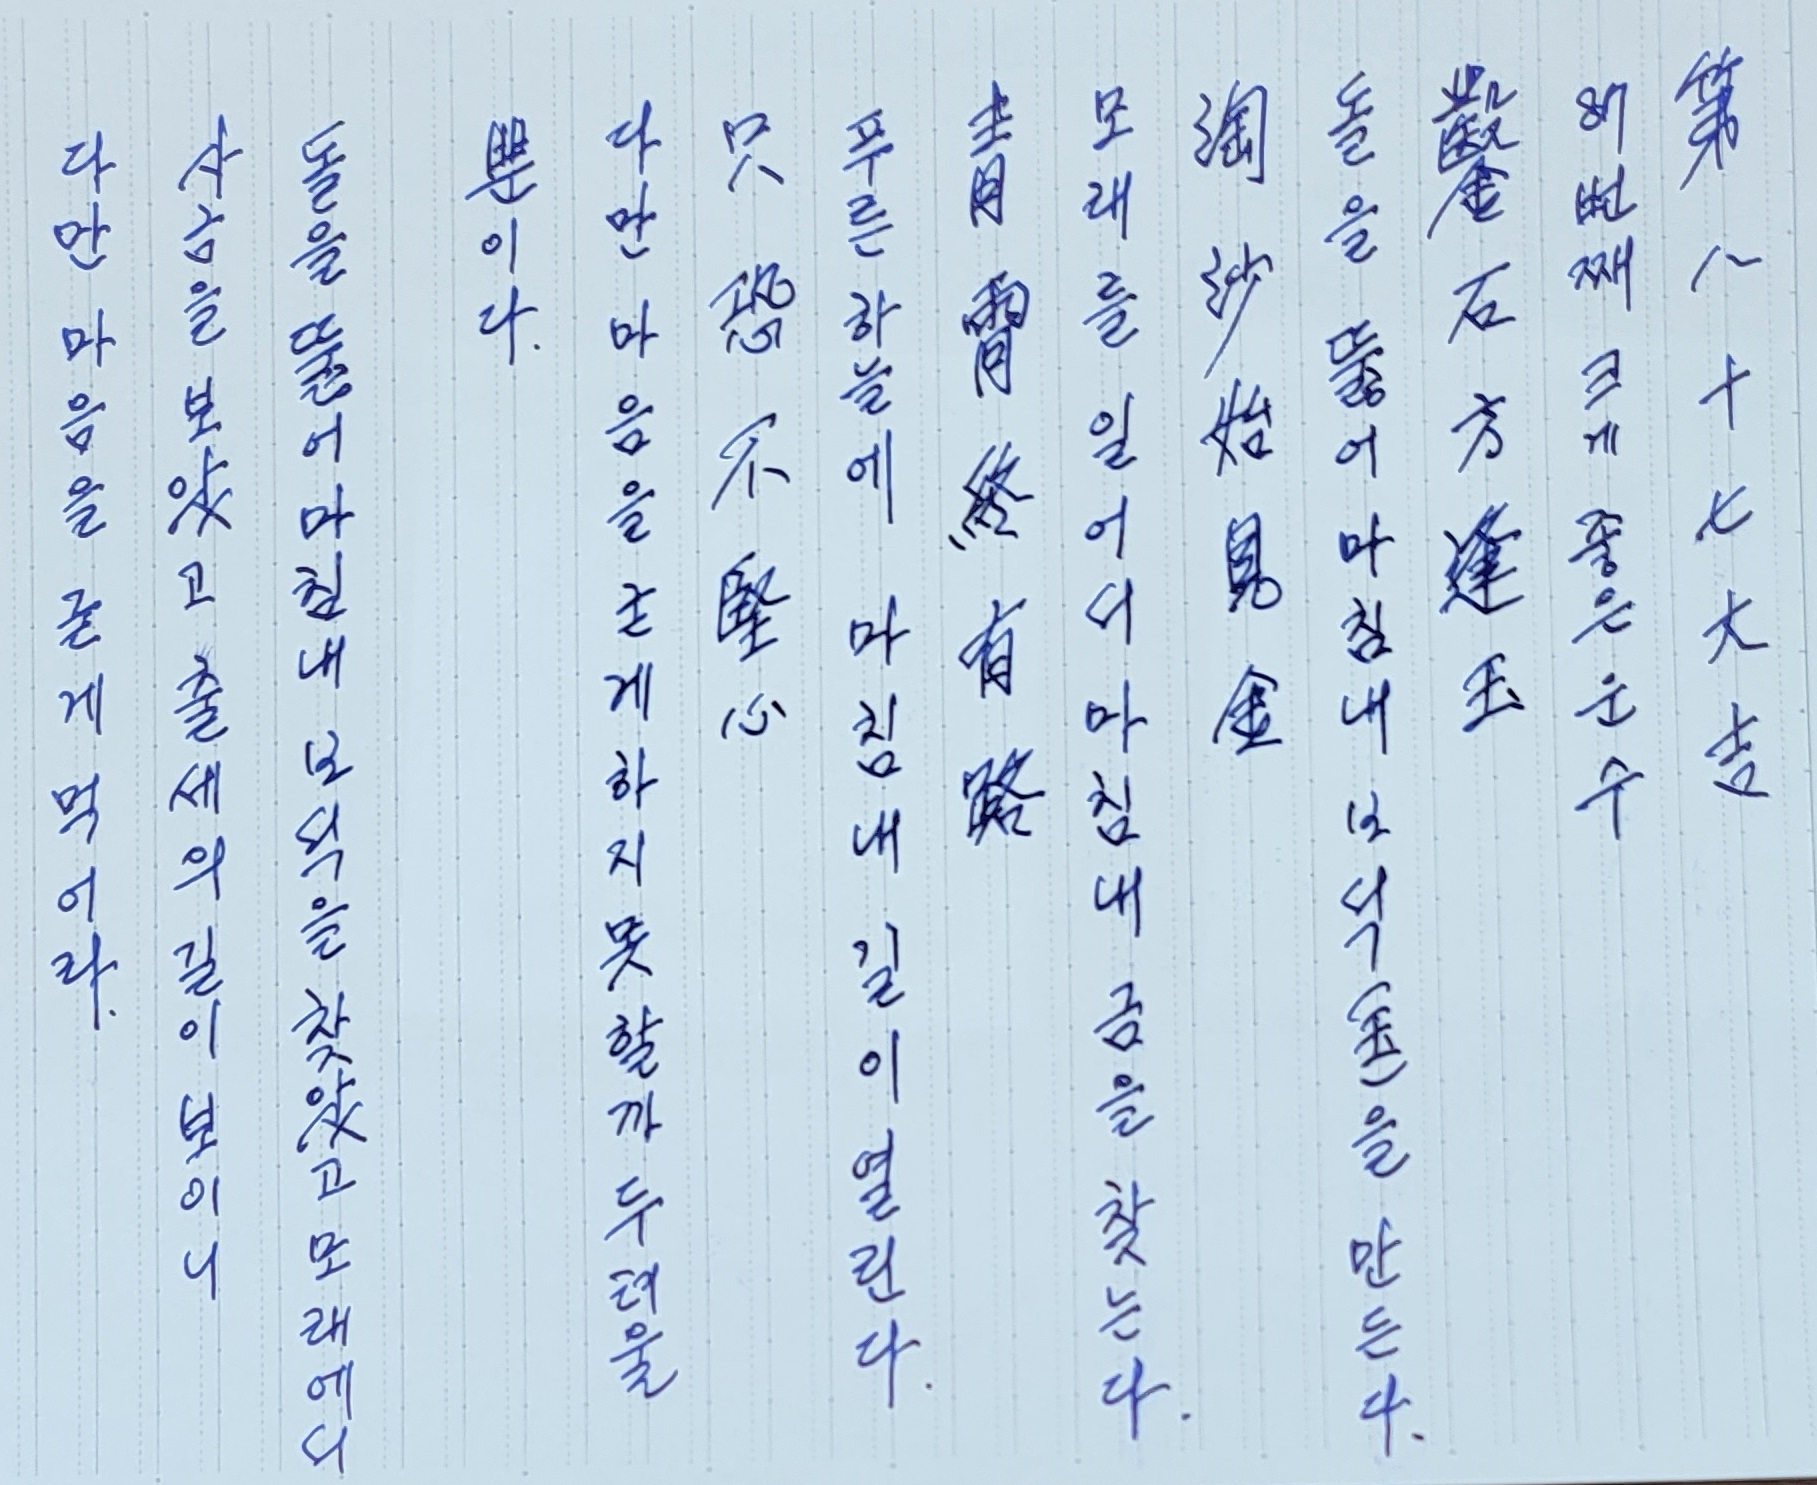 第八十七大吉
87번째 크게 좋은 운수
鑿石方逢玉
돌을 뚫어 마침내 보석(玉)을 만든다.
淘沙始見金
모래를 일어서 마침내 금을 찾는다.
靑霄終有路
푸른 하늘에 마침내 길이 열린다.
只恐不堅心
다만 마음을 굳게하지 못할까 두려울
뿐이다.
돌을 뚫어 마침내 보석을 찾았고 모래에서
사금을 보았고 출세의 길이 보이니
다만 마음을 굳게 먹어라.